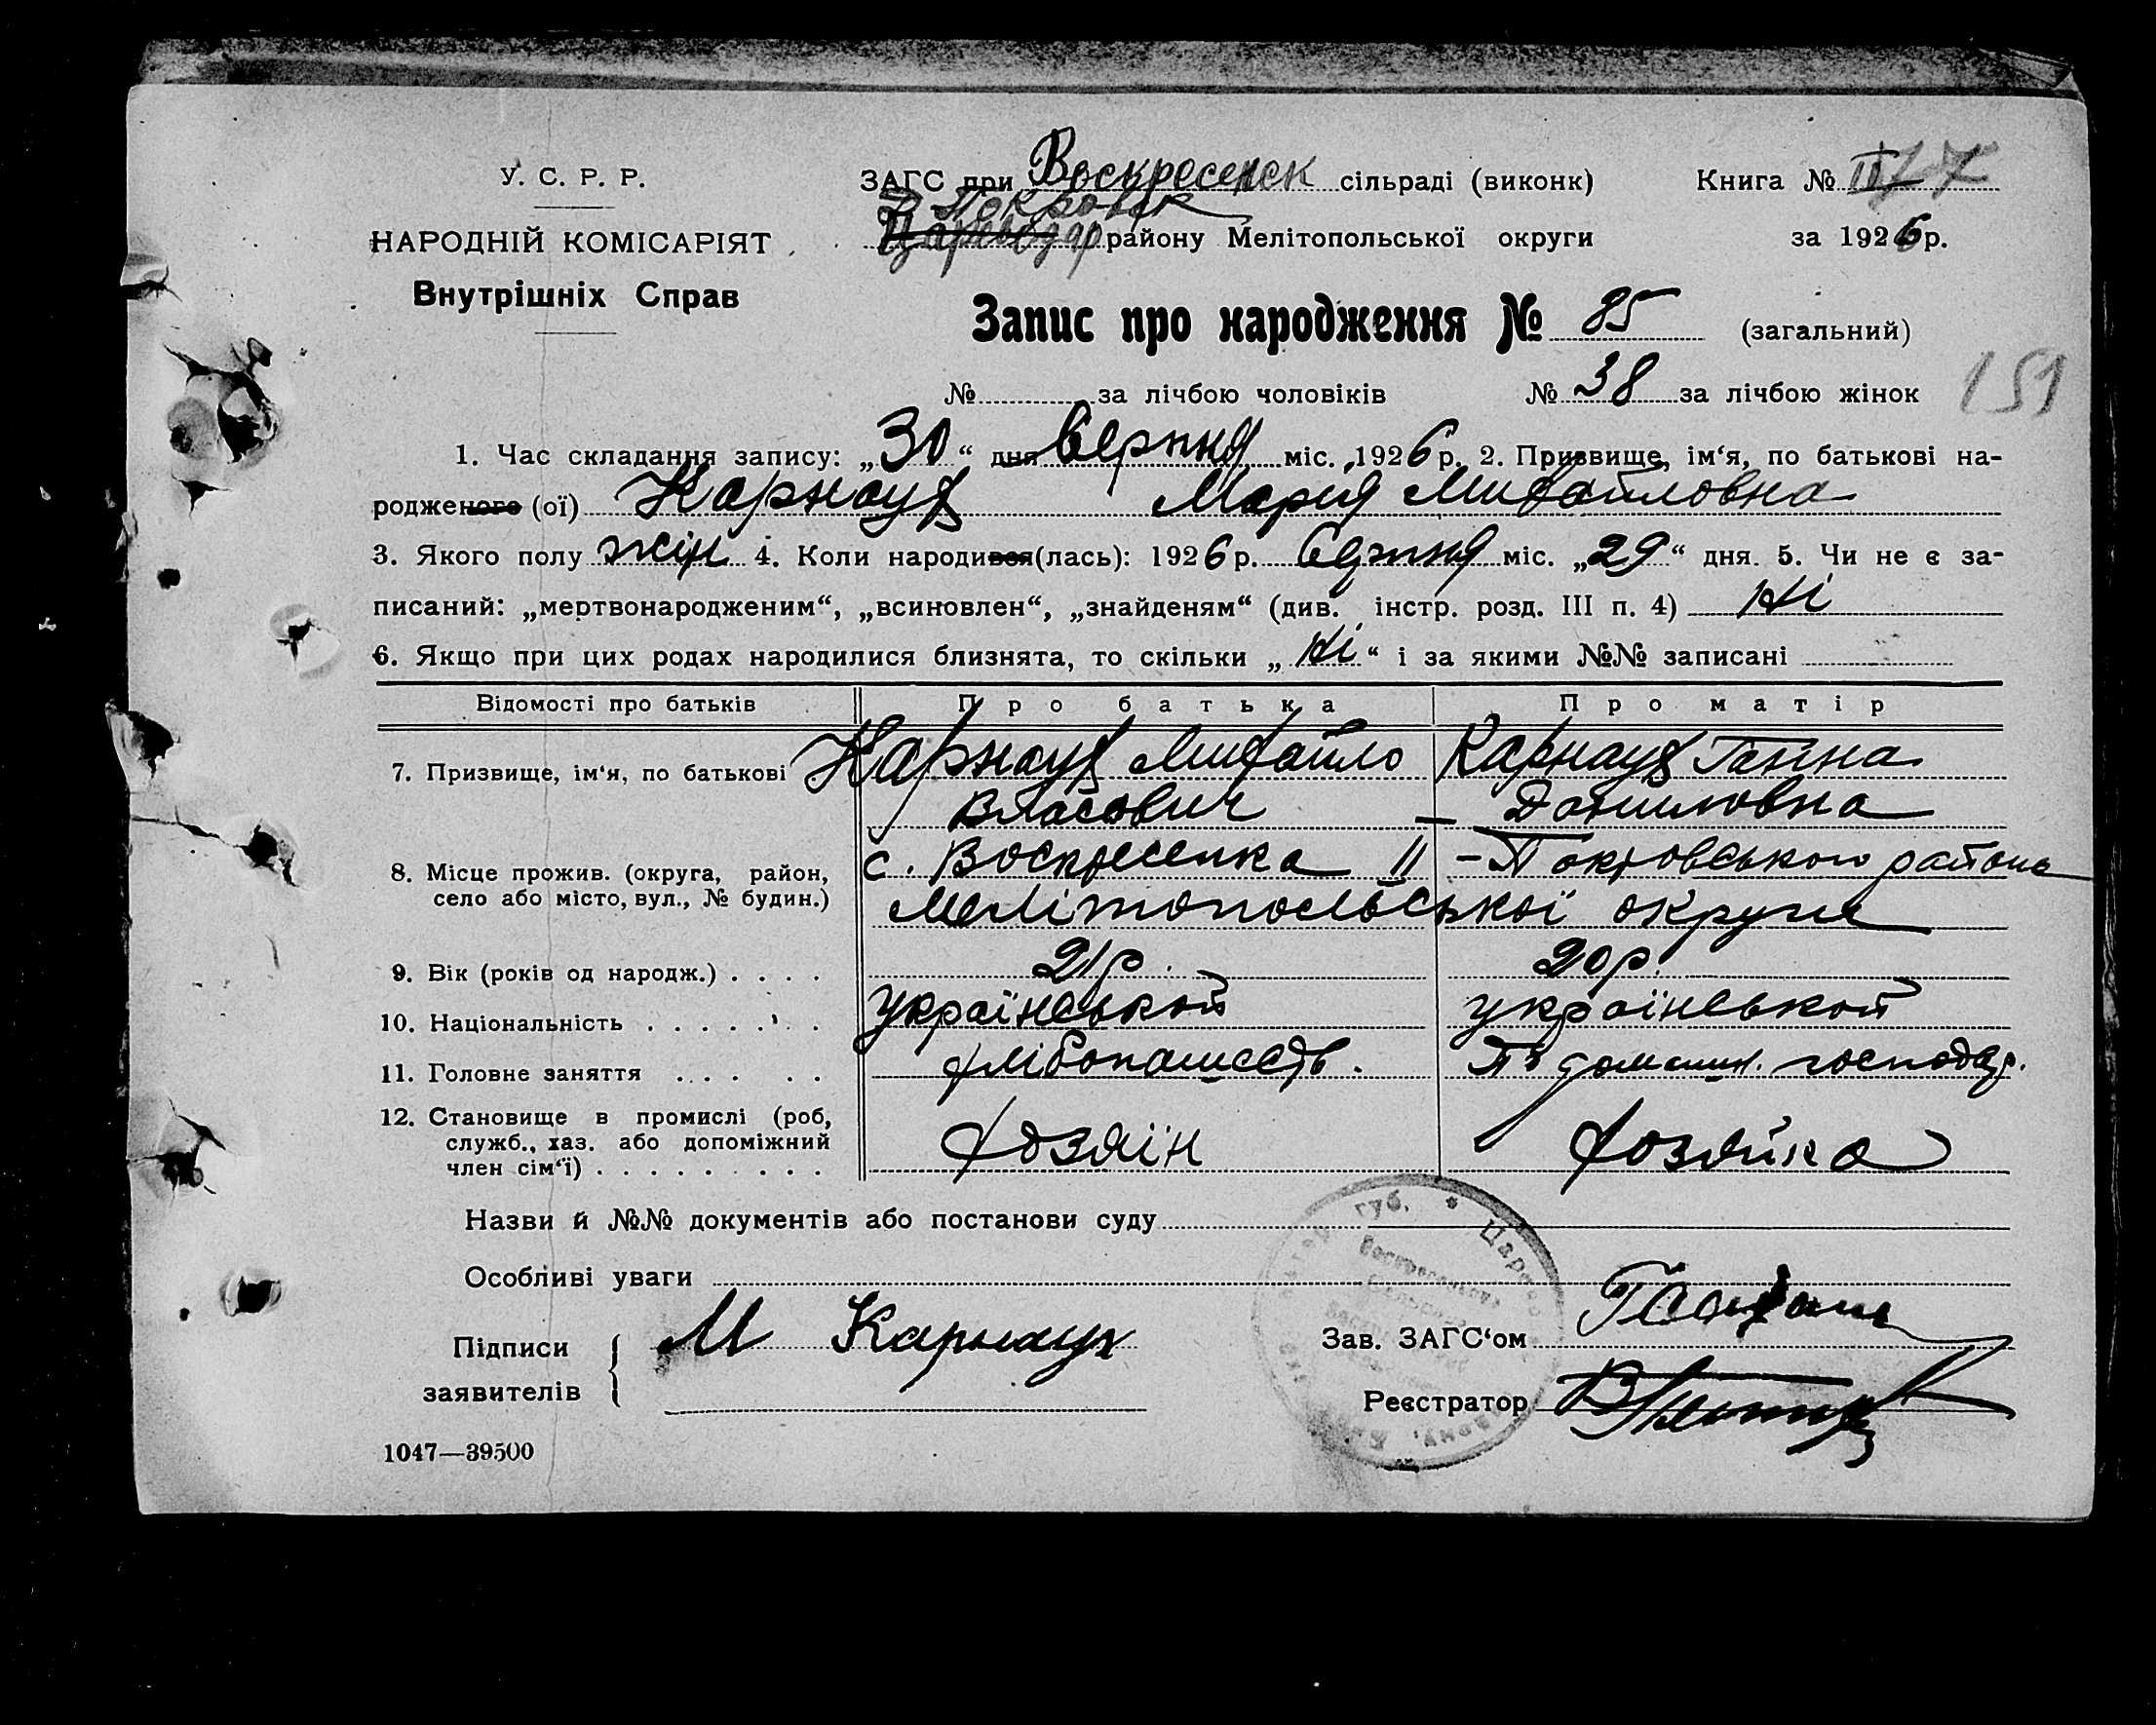 У. С. Р. Р.
НАРОДНІЙ КОМІСАРІЯТ
Внутрішніх Справ
ЗАГС при Воскресенск сільраді (виконк) Книга № III 77
Покровск
Цареводар району Мелітопольської округи за 1926 р.
Запис про народження № 85 (загальний)
№ за лічбою чоловіків № 38 за лічбою жінок
159
1. Час складання запису: „30“ дня Серпня міс. 1926 р. 2. Призвище, ім‘я, по батькові на-
родженого (ої) Карнаух Мария Михайловна
3. Якого полу жін 4. Коли народився(лась): 1926 р. Серпня міс. „29“ дня. 5. Чи не є за-
писаний: „мертвонародженим“, „всиновлен“, „знайденям“ (див. інстр. розд. III п. 4) Ні
6. Якщо при цих родах народилися близнята, то скільки „Ні“ і за якими №№ записані
Відомості про батьків Про батька Про матір
7. Призвище, ім‘я, по батькові Карнаух Михайло Карнаух Ганна
Власович Даниловна
8. Місце прожив. (округа, район, село або місто, вул., № будин.) с. Воскресенка II - Покровського района
Мелітопольської округи
9. Вік (років од народж.) . . . . 21 р. 20 р.
10. Національність . . . . . . . української української
11. Головне заняття . . . . . хлібопашеств. домашн. господар.
12. Становище в промислі (роб,
служб., хаз. або допоміжний
член сім‘ї) . . . . . . . . . Хозяїн Хозяйка
Назви й №№ документів або постанови суду
Особливі уваги
Підписи
заявителів М Карнаух
Зав. ЗАГС‘ом
Реєстратор
губ. * Царево
1047—39500